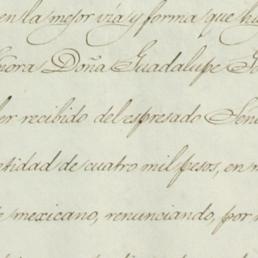 en la mejor via y forma que
nora Doña Guadalupe
er recibido del espresado Señ
ntidad de cuatro mil pesos, en
e mexicano, renunciando, por